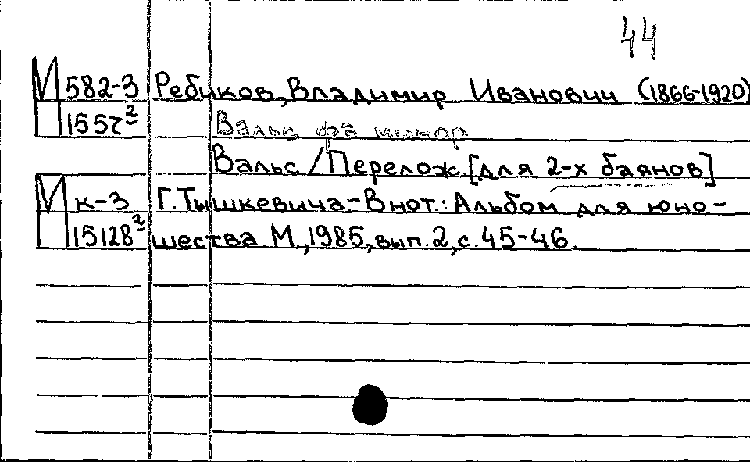 44
М 582-3 Ребиков, Владимир Иванович (1866-1920)
1557²
Вальс фа минор
Вальс / Перелож. [для 2-х баянов]
М к-3 Г. Тышкевича.- В нот.: Альбом для юно-
15128² шества М., 1985, вып. 2, с. 45-46.